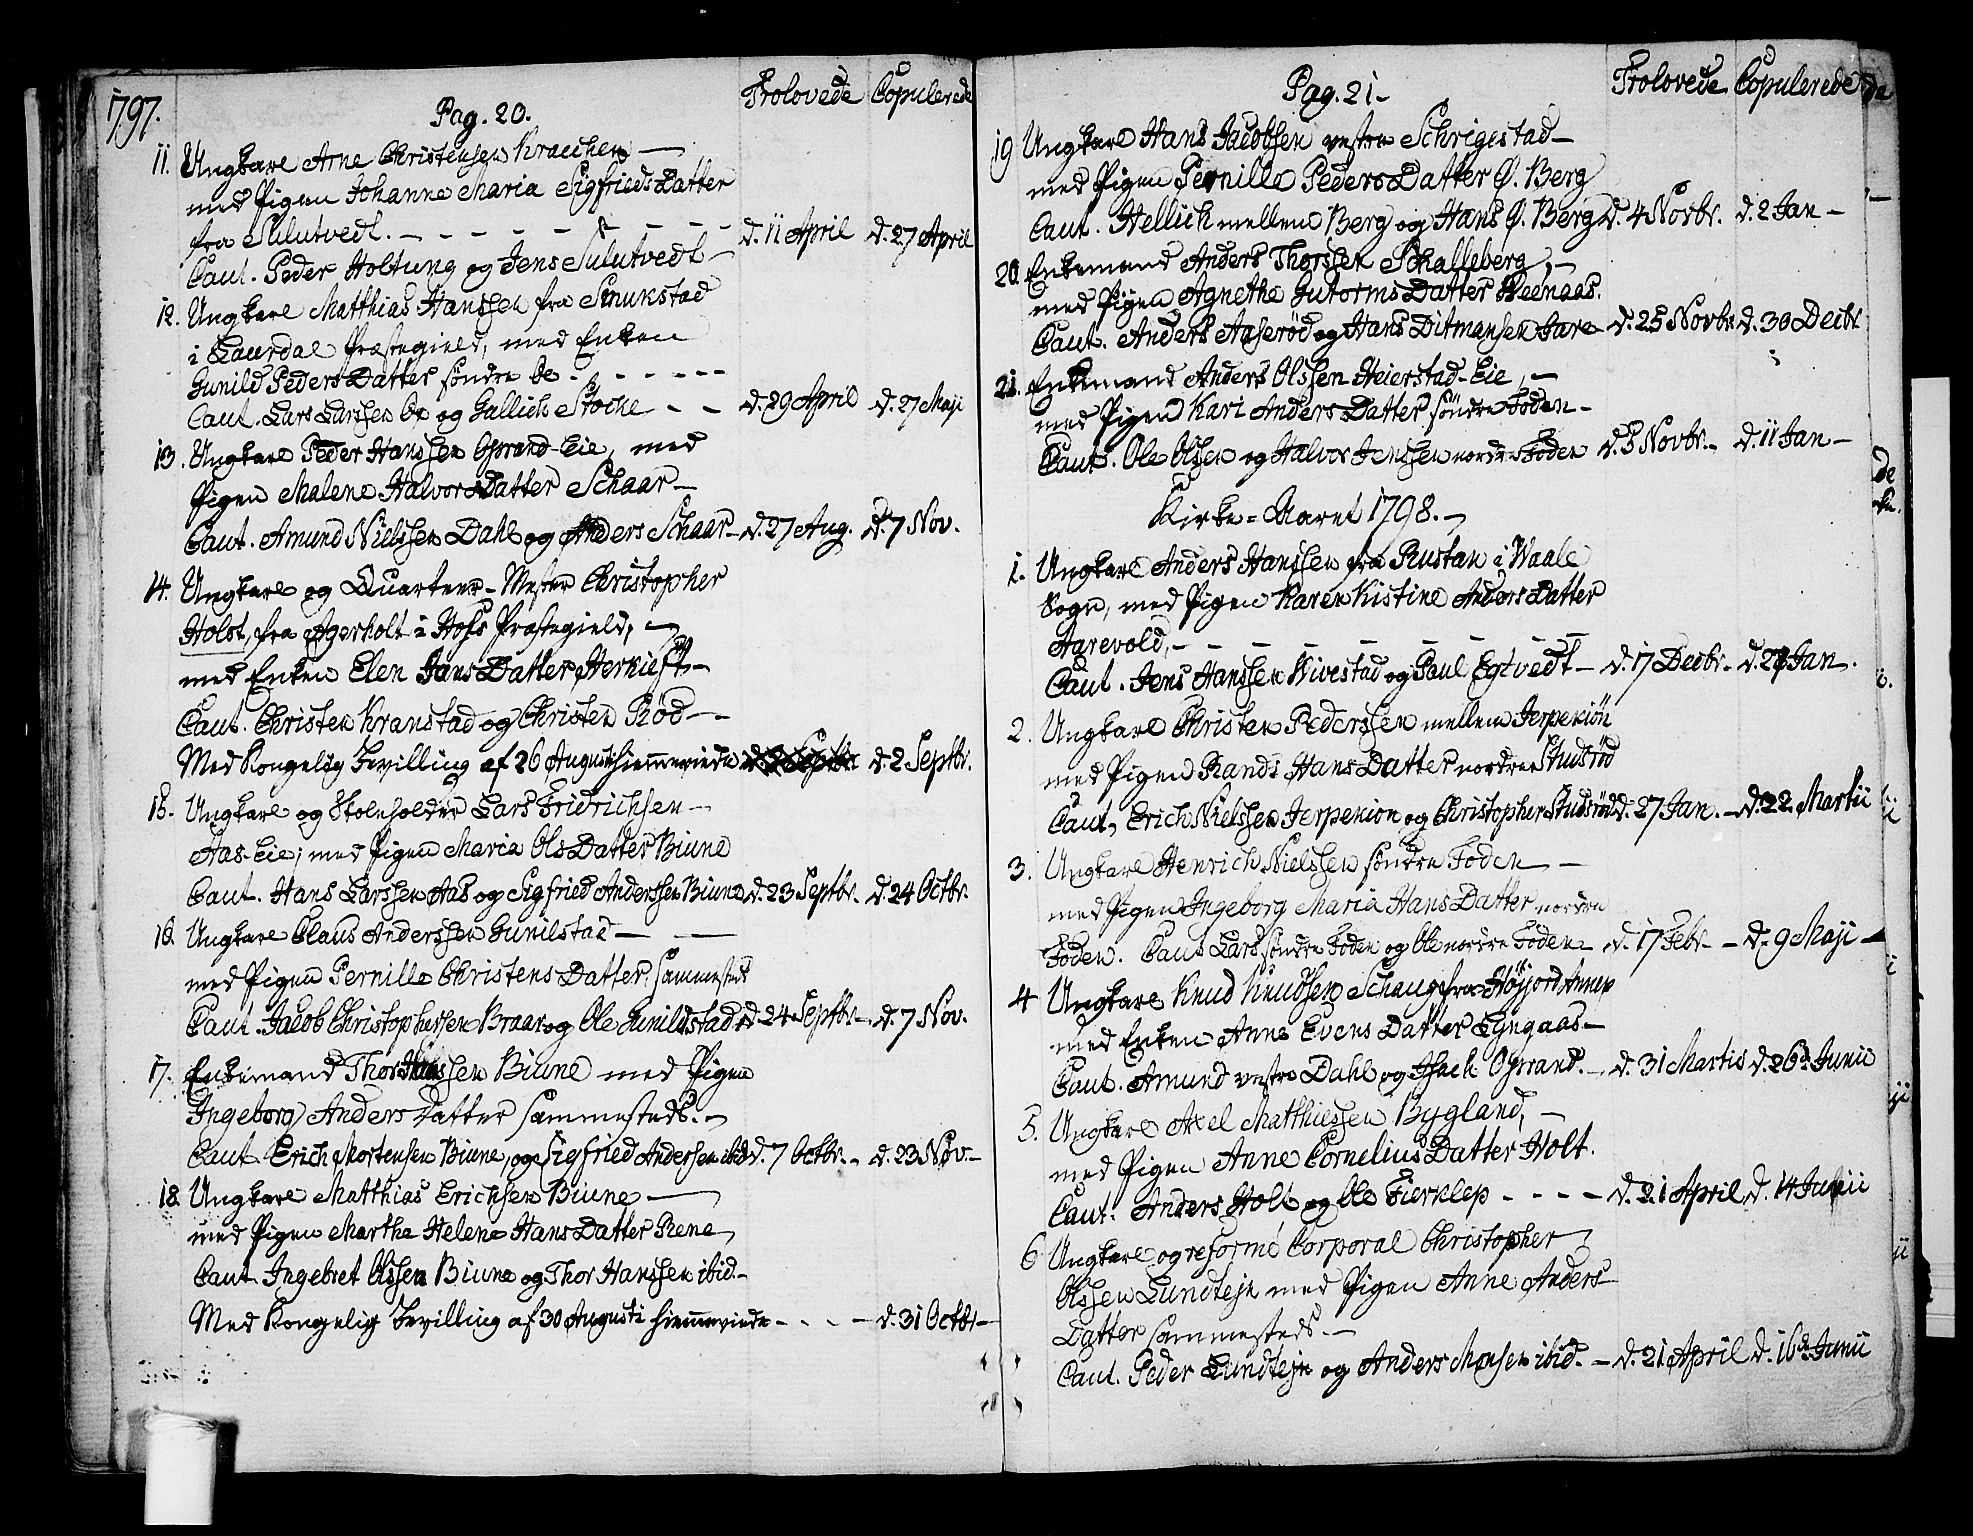 1797.
Pag. 20.
Trolovede Copulerede
11. Ungkarl Arne Christensen Kraechen
med Pigen Johanne Maria Sigfrieds Datter
fra Sulutvedt. d. 11 April d. 27 April
Caut. Peder Holtung og Jens Sulutvedt
12. Ungkarl Matthias Hanssen fra Smukstad
i Laurdal Præstegield, med Enken
Gunild Peders Datter söndre Oe
Caut. Lars Larssen Oe og Gullich Stocke d. 29 April d. 27 Maji
13. Ungkarl Peder Hanssen Oprand-Eie, med
Pigen Malene Halvors Datter Schaar
Caut. Amund Nielssen Dahl og Anders Schaar d. 27 Aug. d. 7 Nov.
14. Ungkarl og Quarteer-Mester Christopher
Holst, fra Agerholt i Hofs Præstegield,
med Enken Elen Jans Datter Herkieft
Caut. Christen Kranstad og Christen Röd
Med Kongelig Bevilling af 26 August hiemmeviede d. 2 Septbr.
15. Ungkarl og Stolnholder Lars Fridrichsen
Aas-Eie; med Pigen Maria Ols Datter Biune
Caut. Hans Larssen Aas og Sigfried Anderssen Biune d. 23 Septbr. d. 24 Octbr.
16. Ungkarl Claus Anderssen Gunilstad
med Pigen Pernille Christens Datter sammesteds
Caut. Jacob Christophersen Braar og Ole Gunildstad d. 24 Septbr. d. 7 Nov.
17. Enkemand Thor Hanssen Biune med Pigen
Ingeborg Anders Datter sammesteds.
Caut. Erich Mortensen Biune, og Sigfried Andersen ibid d. 7 Octbr. d. 23 Nov.
18. Ungkarl Matthias Erichsen Biune
med Pigen Martha Helene Hans Datter Rene
Caut. Ingebret Olssen Biune og Thor Hanssen ibid.
Med Kongelig Bevilling af 30 Augusti hiemmeviede d. 31 Octbr.
Pag. 21
Trolovede Copulerede
19 Ungkarl Hans Jacobsen vestre Schrigestad
med Pigen Pernille Peders Datter Ø. Berg
Caut. Hellich mellem Berg og Hans Ø. Berg d. 4 Novbr. d. 2 Jan
20. Enkemand Anders Thorssen Schalleberg,
med Pigen Agnethe Gutorms Datter Weenaas.
Caut. Anders Aaseröd og Hans Ditmansen Fare d. 25 Novbr. d. 30 Decbr
21. Enkemand Anders Olssen Heierstad-Eie,
med Pigen Kari Anders Datter söndre Foden
Caut. Ole Olssen og Halvor Jenssen nordre Foden d. 5 Novbr. d. 11 Jan
Kirke-Aaret 1798.
1. Ungkarl Anders Hanssen fra Rustan i Waale
Sogn, med Pigen Karen Kistine Anders Datter
Aarevold,
Caut. Jens Hanssen Wivestad og Paul Egtvedt d. 17 Decbr. d. 27 Jan.
2. Ungkarl Christen Pederssen mellem Jerpekiön
med Pigen Randi Hans Datter nordre Stusröd
Caut, Erich Nielssen Jerpekion og Christopher Stusröd d. 27 Jan. d. 22 Martii
3. Ungkarl Henrich Nielssen söndre Foden
med Pigen Ingeborg Maria Hans Datter nordre
Foden. Caut Lars söndre Foden og Ole nordre Foden d. 17 Febr. d. 9 Maji
4 Ungkarl Knud Knudsen Schaug fra Höijord Annex
med Enken Anne Evens Datter Lyngaas
Caut. Amund vestre Dahl og Isach Oprand. d. 31 Martis d. 26de Junii
5. Ungkarl Axel Matthiessen Bygland,
med Pigen Anne Cornelius Datter Holt.
Caut. Anders Holt og Ole Fierklep d. 21 April d. 14 Junii
6 Ungkarl og reformé Corporal Christopher
Olssen Lundtejn med Pigen Anne Anders
Datter sammesteds.
Caut. Peder Lundtejn og Anders Monsen ibid. d. 21 April d. 16de Junii